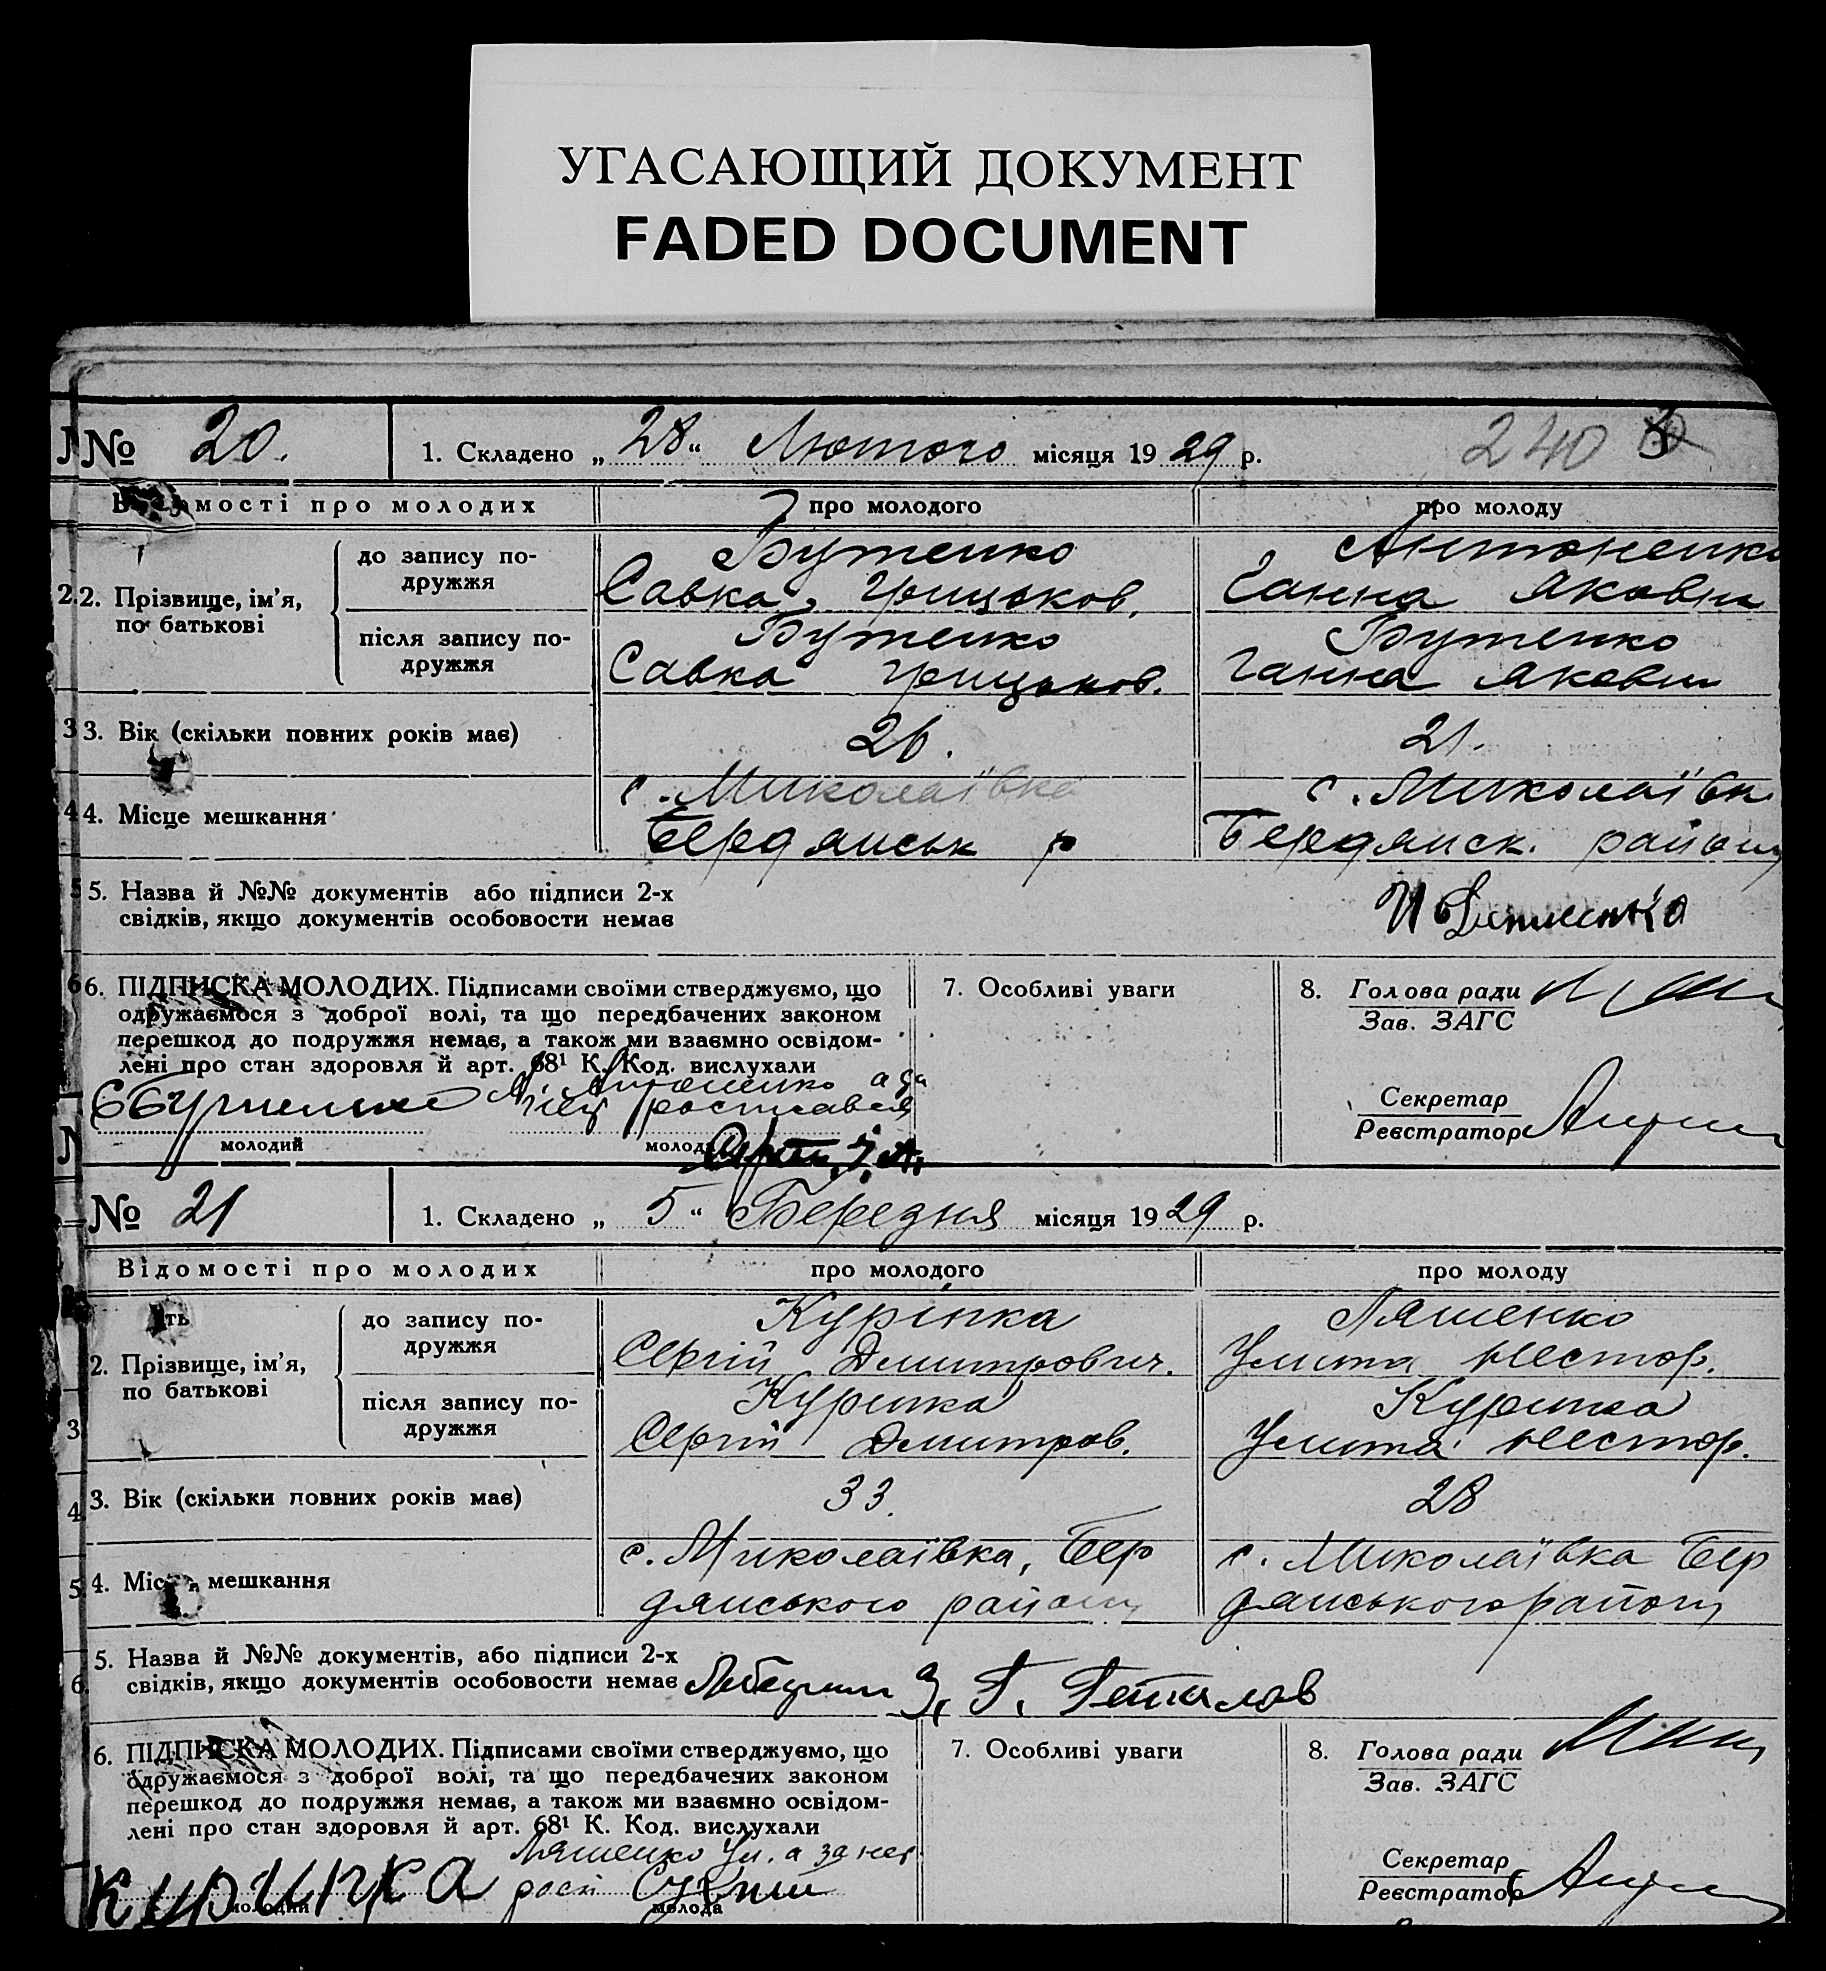 УГАСАЮЩИЙ ДОКУМЕНТ
FADED DOCUMENT
№ 20. 1. Складено „28“ Лютого місяця 1929 р. 240
Відомості про молодих про молодого про молоду
до запису по-
дружжя
Бутенко Антоненко
Савка Грицьков. Ганна Яковн
2. Прізвище, ім’я,
по батькові
після запису по-
дружжя
Бутенко Бутенко
Савка Грицьков. Ганна Яковн
3. Вік (скільки повних років має) 26. 21.
4. Місце мешкання
с. Миколаївка с. Миколаївк
Бердянськ р Бердянск. району
5. Назва й №№ документів або підписи 2-х
свідків, якщо документів особовости немає
6. ПІДПИСКА МОЛОДИХ. Підписами своїми стверджуємо, що
одружаємося з доброї волі, та що передбачених законом
перешкод до подружжя немає, а також ми взаємно освідом-
лені про стан здоровля й арт. 68¹ К. Код. вислухали
Антоненко а за
неї росписався
молодий молода
7. Особливі уваги
8. Голова ради
Зав. ЗАГС
Секретар
Реєстратор
№ 21 1. Складено „5“ Березня місяця 1929 р.
Відомості про молодих про молодого про молоду
до запису по-
дружжя
Курінка Ляшенко
Сергій Дмитрович. Улита Нестор.
2. Прізвище, ім’я,
по батькові
після запису по-
дружжя
Куринка Куринка
Сергій Дмитров. Улита Нестор.
3. Вік (скільки повних років має) 33. 28
4. Місце мешкання
с. Миколаївка, Бер с. Миколаївка Бер
дянського району дянського району
5. Назва й №№ документів, або підписи 2-х
свідків, якщо документів особовости немає
6. ПІДПИСКА МОЛОДИХ. Підписами своїми стверджуємо, що
одружаємося з доброї волі, та що передбачених законом
перешкод до подружжя немає, а також ми взаємно освідом-
лені про стан здоровля й арт. 68¹ К. Код. вислухали
Ляшенко Ул. а за неї
куринка
молодий молода
7. Особливі уваги
8. Голова ради
Зав. ЗАГС
Секретар
Реєстратор